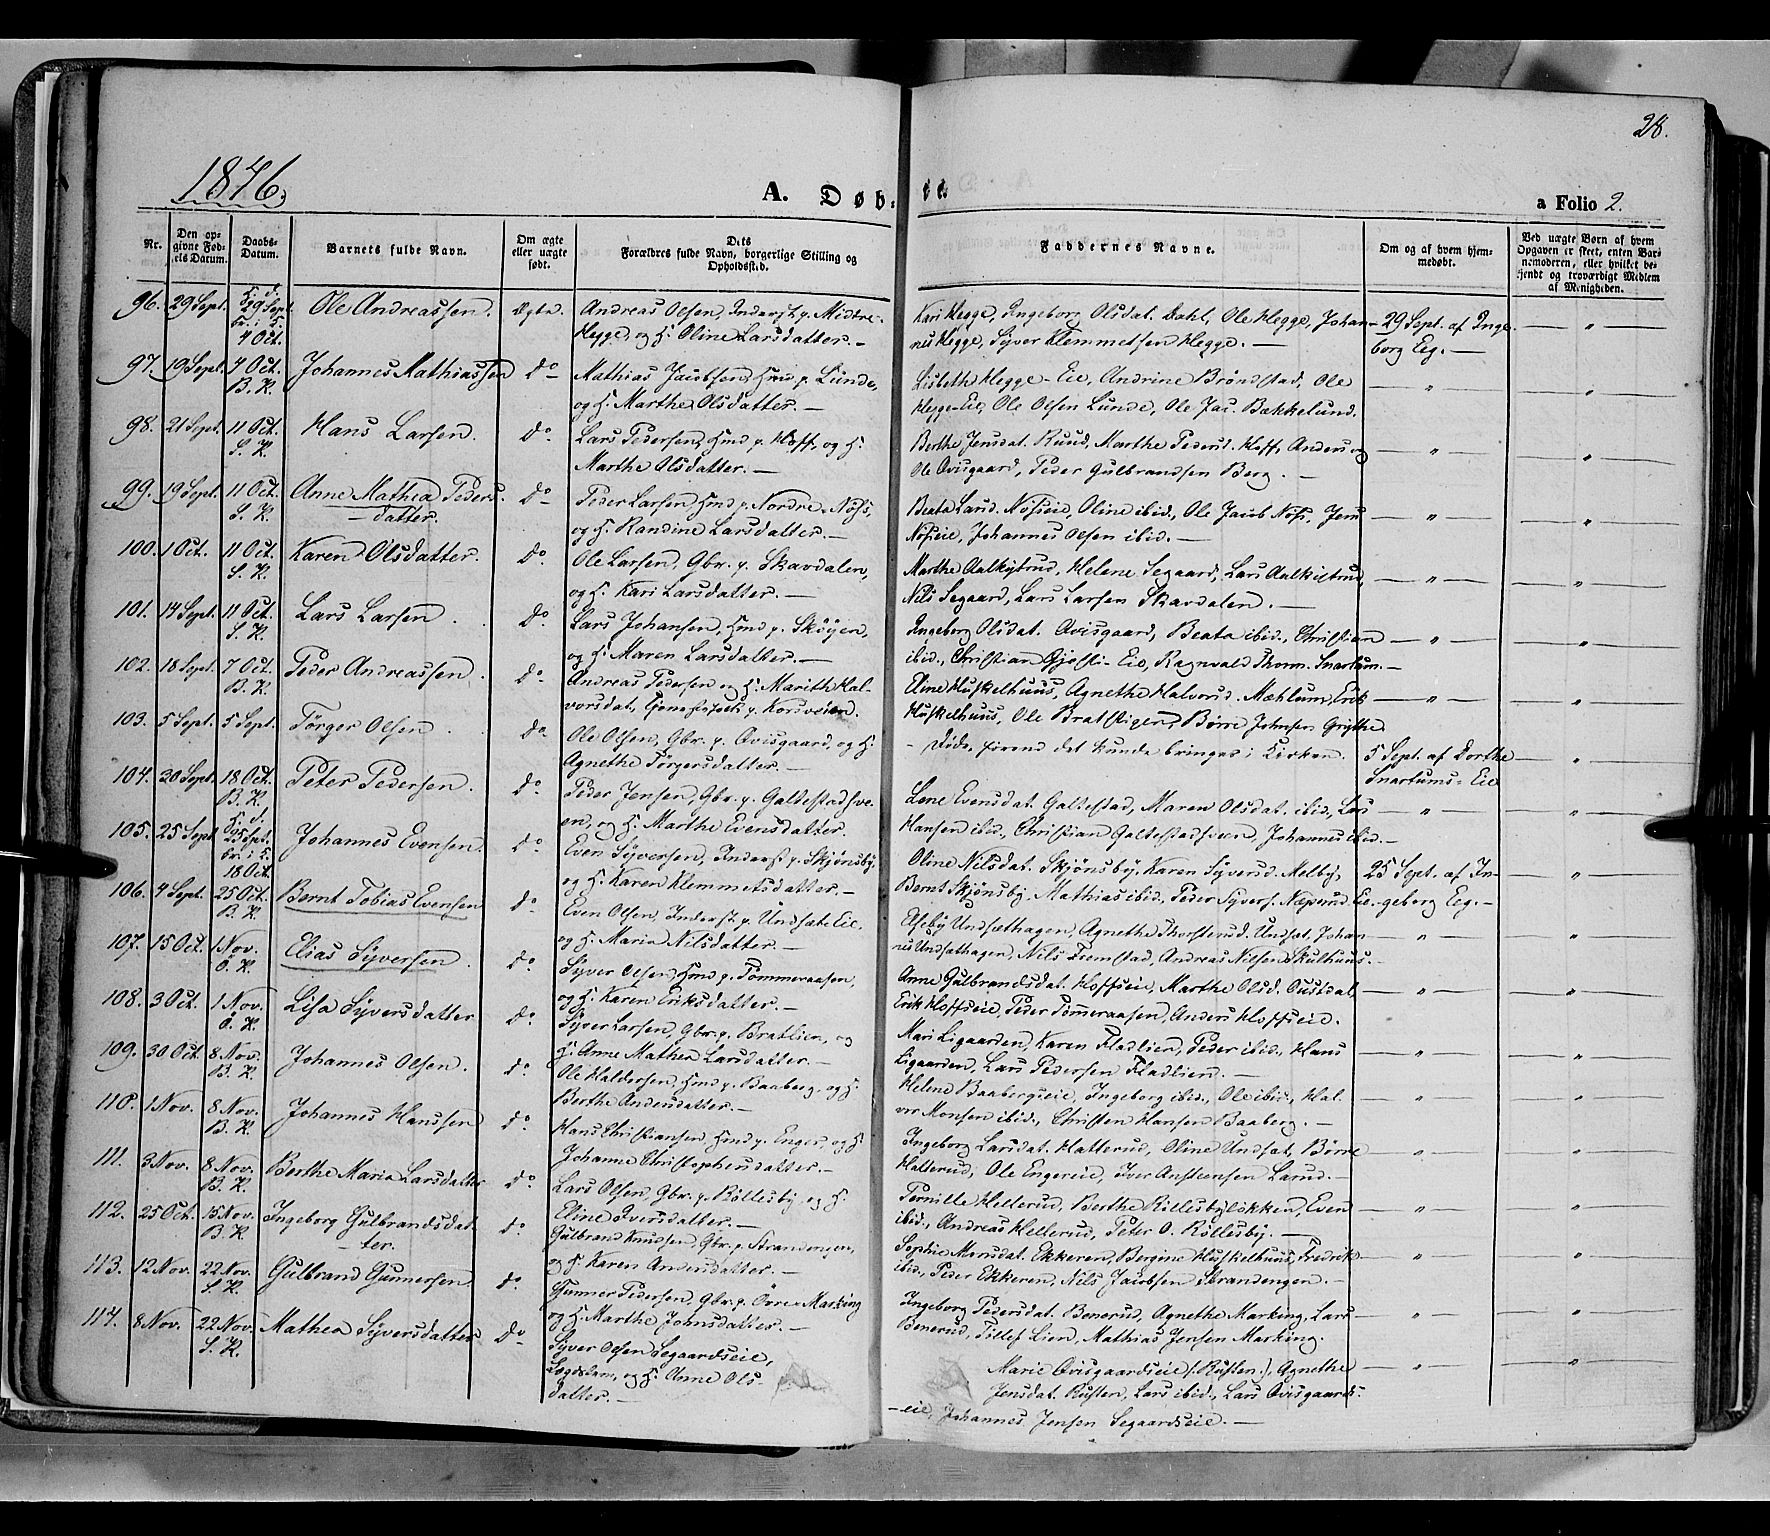 28.
1846.
A. Døb-
te.
a Folio 2.
Nr.
Den op-
givne Fød-
sels Datum.
Daabs-
Datum.
Barnets fulde Navn.
Om ægte
eller uægte
født.
Dets
Forældres fulde Navn, borgerlige Stilling og
Opholdssted.
Faddernes Navne.
Om og af hvem hjem-
medøbt.
Ved uægte Børn af hvem
Opgaven er skeet, enten Bar-
nemoderen, eller hvilket be-
kjendt og troværdigt Medlem
af Menigheden.
96. 29 Sept. H. d. 29 Sept. br. i K. 4 Oct. Ole Andreassen. Ægte. Andreas Olsen, Inderst p. Midtre-
Hegge, og H. Oline Larsdatter. —
Kari Hegge, Ingeborg Olsdat. Dahl, Ole Hegge, Johan-
nes Hegge, Syver Klemmetsen Hegge. —
29 Sept. af Inge-
borg Eeg. —
97. 19 Sept. 4 Oct. B. K. Johannes Mathiassen Do Mathias Jacobsen, Hmd p. Lunde,
og H. Marthe Olsdatter. —
Lisbeth Hegge-Eie, Andrine Bröndstad, Ole
Hegge-Eie, Ole Olsen Lunde, Ole Jac. Bækkelund.
98. 21 Sept. 11 Oct. S. K. Hans Larsen. Do Lars Pedersen, Hmd p. Hoff, og H.
Marthe Olsdatter. —
Berthe Jensdat. Ruud, Marthe Pedersd. Hoff, Anders og
Ole Qvisgaard, Peder Gulbrandsen Berg. —
99. 19 Sept. 11 Oct. S. K. Anne Mathea Peders-
datter. Do Peder Larsen, Hmd p. Nordre-Nöss,
og H. Randine Larsdatter. —
Beata Larsd. Nösseie, Oline ibid., Ole Jacob Nöss, Jens
Nösseie, Johannes Olsen ibid. —
100. 1 Oct. 11 Oct. S. K. Karen Olsdatter. Do Ole Larsen, Gbr. p. Skavdalen,
og H. Kari Larsdatter. —
Marthe Aalkystrud, Helene Segaard, Lars Aalkystrud,
Nils Segaard, Lars Larsen Skavdalen. —
101. 14 Sept. 11 Oct. S. K. Lars Larsen. Do Lars Johansen, Hmd p. Sköyen,
og H. Maren Larsdatter. —
Ingeborg Olsdat. Qvisgaard, Beata ibid., Christian
ibid., Christian Gjösti-Eie, Ragnvald Thom. Snartum. —
102. 18 Sept. 7 Oct. B. K. Peder Andreassen. Do Andreas Pedersen og H. Marith Hal-
vorsdat., Tjenestefolk p. Korsveien.
Eline Huskelhuus, Agnethe Halvorsd. Mæhlum, Erik
Huskelhuus, Ole Bratstigen, Börre Johnsen Grythe.
103. 5 Sept. 5 Sept. Törger Olsen. Do Ole Olsen, Gbr. p. Qvisgaard, og H.
Agnethe Törgersdatter. —
— Døde, førend det kunde bringes i Kirken.
5 Sept. af Dorthe
Snartums-Eie
104. 30 Sept. 18 Oct. B. K. Peter Pedersen. Do Peder Jensen, Gbr. p. Galtestadsve-
en, og H. Marthe Evensdatter.
Lene Evensdat. Galtestad, Maren Olsdat. ibid., Lars
Hansen ibid., Christian Galtestadsveen, Johannes ibid. —
105. 25 Sept. H. d. 25 Sept. br. i K. 18 Oct. Johannes Evensen. Do Even Syversen, Inderst p. Skjönsby,
og H. Karen Klemmetsdatter. —
Oline Nilsdat. Skjönsby, Karen Syversd. Melby,
Bernt Skjönsby, Mathias ibid., Peder Syvers. Næperud-Eie.
25 Sept. af In-
geborg Eeg. —
106. 4 Sept. 25 Oct. B. K. Bernt Tobias Evensen Do Even Olsen, Inderst p. Undset-Eie,
og H. Maria Nilsdatter. —
Elseby Undsethagen, Agnethe Thorstensd. Undset, Johan-
nes Undsethagen, Nils Fremstad, Andreas Nilsen Skulhuus. —
107. 15 Oct. 1 Nov. Ö. K. Elias Syversen. Do Syver Olsen, Hmd p. Tömmeraasen,
og H. Karen Eriksdatter. —
Anne Gulbrandsdat. Hoffseie, Marthe Olsd. Oustdal,
Erik Hoffseie, Peder Tömmeraasen, Anders Hoffseie.
108. 3 Oct. 1 Nov. Ö. K. Lisa Syversdatter Do Syver Larsen, Gbr. p. Bratlien, og
H. Anne Mathea Larsdatter. —
Mari Ligaarden, Karen Fladlien, Peder ibid., Hans
Ligaarden, Lars Pedersen Fladlien. —
109. 30 Oct. 8 Nov. B. K. Johannes Olsen. Do Ole Haldorsen, Hmd p. Baaberg, og H.
Berthe Andersdatter. —
Helene Baabergseie, Ingeborg ibid., Ole ibid., Hal-
vor Monsen ibid., Christen Hansen Baaberg. —
110. 1 Nov. 8 Nov. B. K. Johannes Hanssen Do Hans Christiansen, Hmd p. Enger, og H.
Johanne Christophersdatter. —
Ingeborg Larsdat. Hatterud, Oline Undset, Börre
Hatterud, Ole Engereie, Iver Anstensen Larud. —
111. 3 Nov. 8 Nov. B. K. Berthe Maria Larsdatter Do Lars Olsen, Gbr. p. Röllesby, og H.
Eline Iversdatter. —
Pernille Hellerud, Berthe Röllesbylökken, Even
ibid., Andreas Hellerud, Peter O. Röllesby. —
112. 25 Oct. 15 Nov. B. K. Ingeborg Gulbrandsdat-
ter. Do Gulbrand Knudsen, Gbr. p. Strandengen,
og H. Karen Andersdatter. —
Sophie Monsdat. Ekkeren, Bergine Huskelhuus, Fredrik
ibid., Peder Ekkeren, Nils Jacobsen Strandengen. —
113. 12 Nov. 22 Nov. S. K. Gulbrand Gunnersen. Do Gunner Pedersen, Gbr. p. Övre-Marking
og H. Marthe Johnsdatter. —
Ingeborg Pedersdat. Benerud, Agnethe Marking, Lars
Benerud, Tillef Lien, Mathias Jensen Marking.
114. 8 Nov. 22 Nov. S. K. Mathea Syversdatter Do Syver Olsen Segaardseie,
Logdslem, og H. Anne Ols-
datter. —
Marie Qvisgaardseie (Rusten.), Agnethe
Jensdat. Rusten, Lars ibid., Lars Qvisgaards-
eie, Johannes Jensen Segaardseie. —